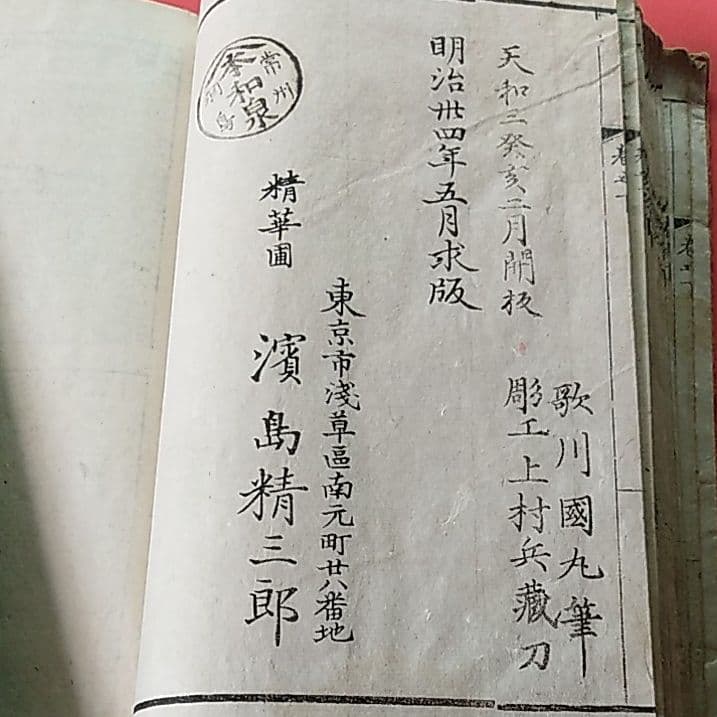 歌川國丸筆
彫工上村兵藏刀
天和三癸亥二月開板
明治卅四年五月求版
東京市淺草區南元町廿八番地
精華圃
濱島精三郎
常州
本和泉
卷之一